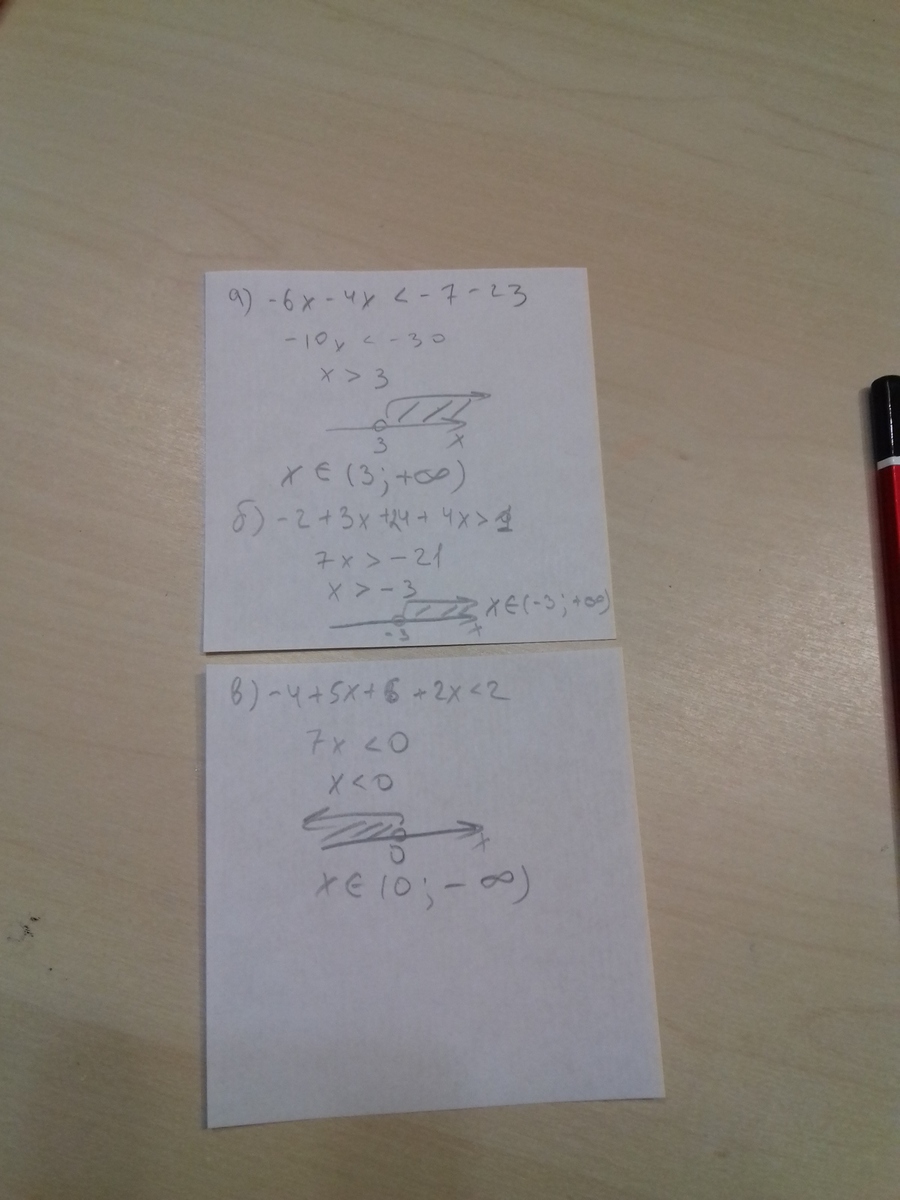 а) -6x - 4x < -7 - 23
-10x < -30
x > 3
3 x
x ∈ (3; +∞)
б) -2 + 3x +24 + 4x >
7x > -21
x > -3
x ∈ (-3; +∞)
-3 x
в) -4 + 5x + 6 + 2x < 2
7x < 0
x < 0
0 x
x ∈ (0; -∞)